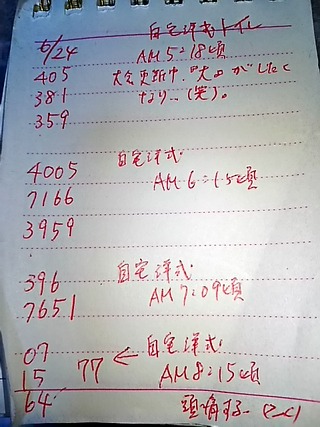 自宅洋式トイレ
6/24 AM5:18頃
405 大会更新中 "大"がしたく
381 なり..(笑)。
359
自宅洋式:
4005 AM6:15頃
7166
3959
396 自宅洋式:
7651 AM7:09頃
07 自宅洋式:
15 77 ← AM8:15頃
64 頭痛する..